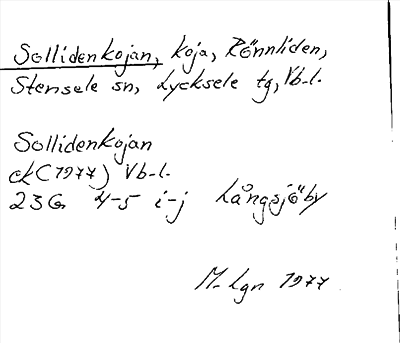 Sollidenkojan, koja, Rönnliden,
Stensele sn, Lycksele tg, Vb-l.
Sollidenkojan
ek (1977) Vb-l.
23G 4-5 i-j Långsjöby
M-Lgn 1977